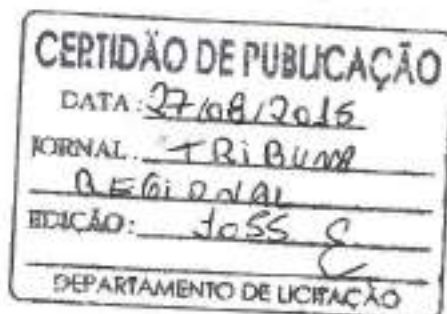 CERTIDÃO DE PUBLICAÇÃO
DATA: 27/08/2015
JORNAL: TRIBUNA
REGIONAL
EDIÇÃO: 1055
DEPARTAMENTO DE LICITAÇÃO